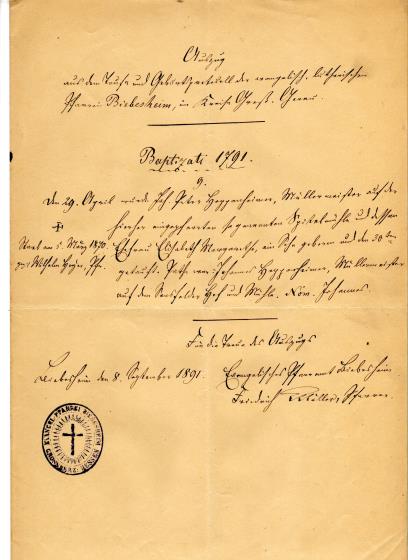 Auszug
aus dem Tauf- und Geburtsprotokoll der evangelisch-lutherischen
Pfarrei Biebesheim, im Kreise Groß-Gerau.
Baptizati 1791.
9.
Den 29. April wurde Joh. Peter Heppenheimer, Müllermeister auf der
hierher eingepfarrten sogenannten Spitalmühle und dessen
Ehefrau Elisabeth Margaretha, ein Sohn geboren und den 30ten
getauft. Path war Johannes Heppenheimer, Müllermeister
auf dem Sensfelder Hof und Mühle. Nom. Johannes.
✠
starb am 5. März 1870.
Wilhelm Pfr.
Für die Treue des Auszugs
Biebesheim den 8. September 1891.
Evangelisches Pfarramt Biebesheim
Friedrich Müller, Pfarrer
EVANGEL. PFARREI BIEBESHEIM
HESSEN